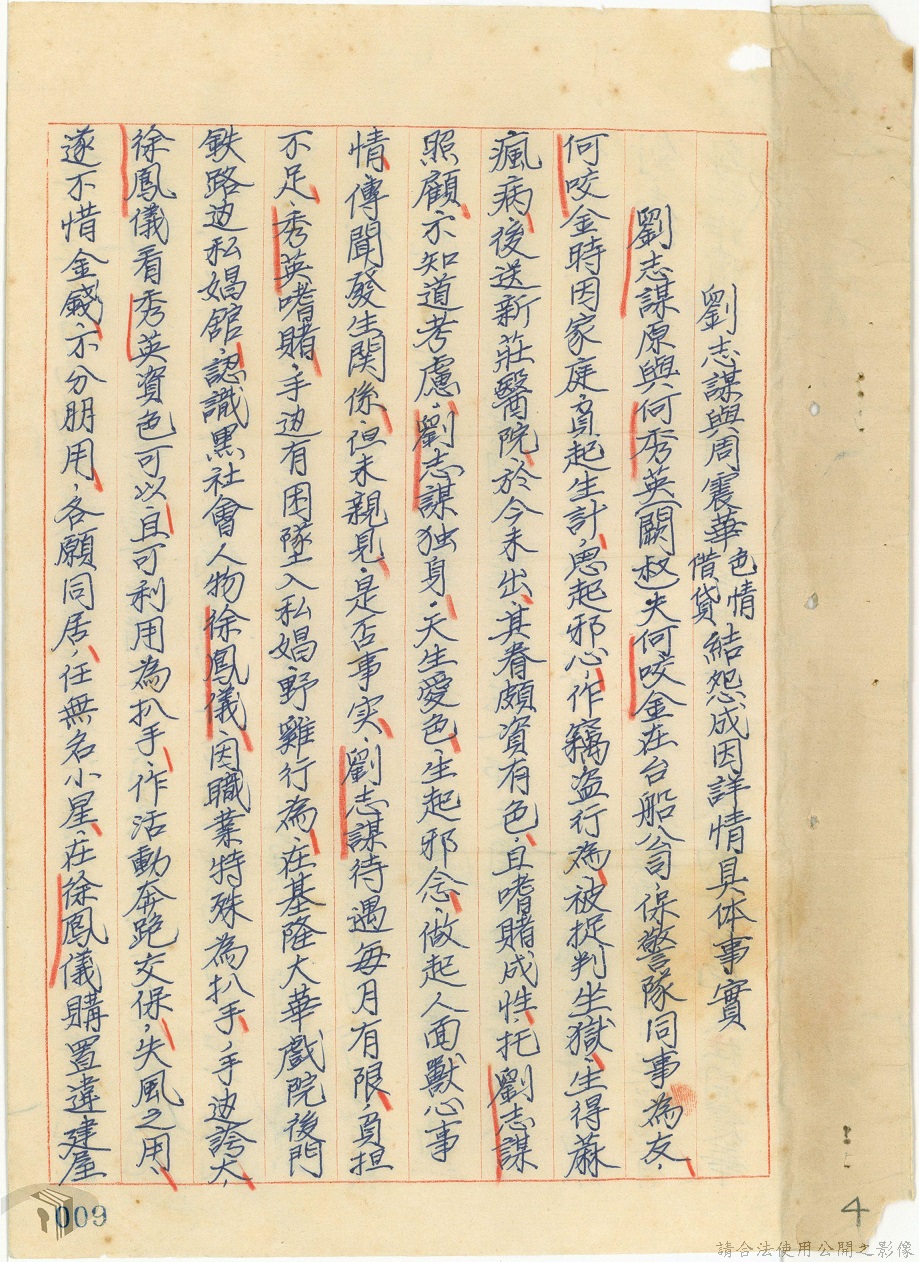 劉志謀與周震華色情借貸結怨成因詳情具体事實
劉志謀原與何秀英(闕叔)夫何咬金在台船公司、保警隊同事為友、
何咬金時因家庭、負起生計、思起邪心、作竊盜行為、被捉判坐獄、生得蔴
瘋病、後送新莊醫院、於今未出、其眷頗資有色、且嗜賭成性、托劉志謀
照顧、示知道考慮、劉志謀独身、天生愛色、生起邪念、做起人面獸心事
情、傳聞發生関係、但未親見、是否事実、劉志謀待遇每月有限、負担
不足、秀英嗜賭、手边有困墜入私娼、野雞行為、在基隆大華戲院後門
鉄路边私娼舘、認識黑社會人物徐鳳儀、因職業特殊為扒手、手边誇大、
徐鳳儀看秀英資色可以、且可利用為扒手、作活動奔跑交保，失風之用、
遂不惜金錢、示分朋用、各願同居、任無名小星、在徐鳳儀購置違建屋
009
4
請合法使用公開之影像